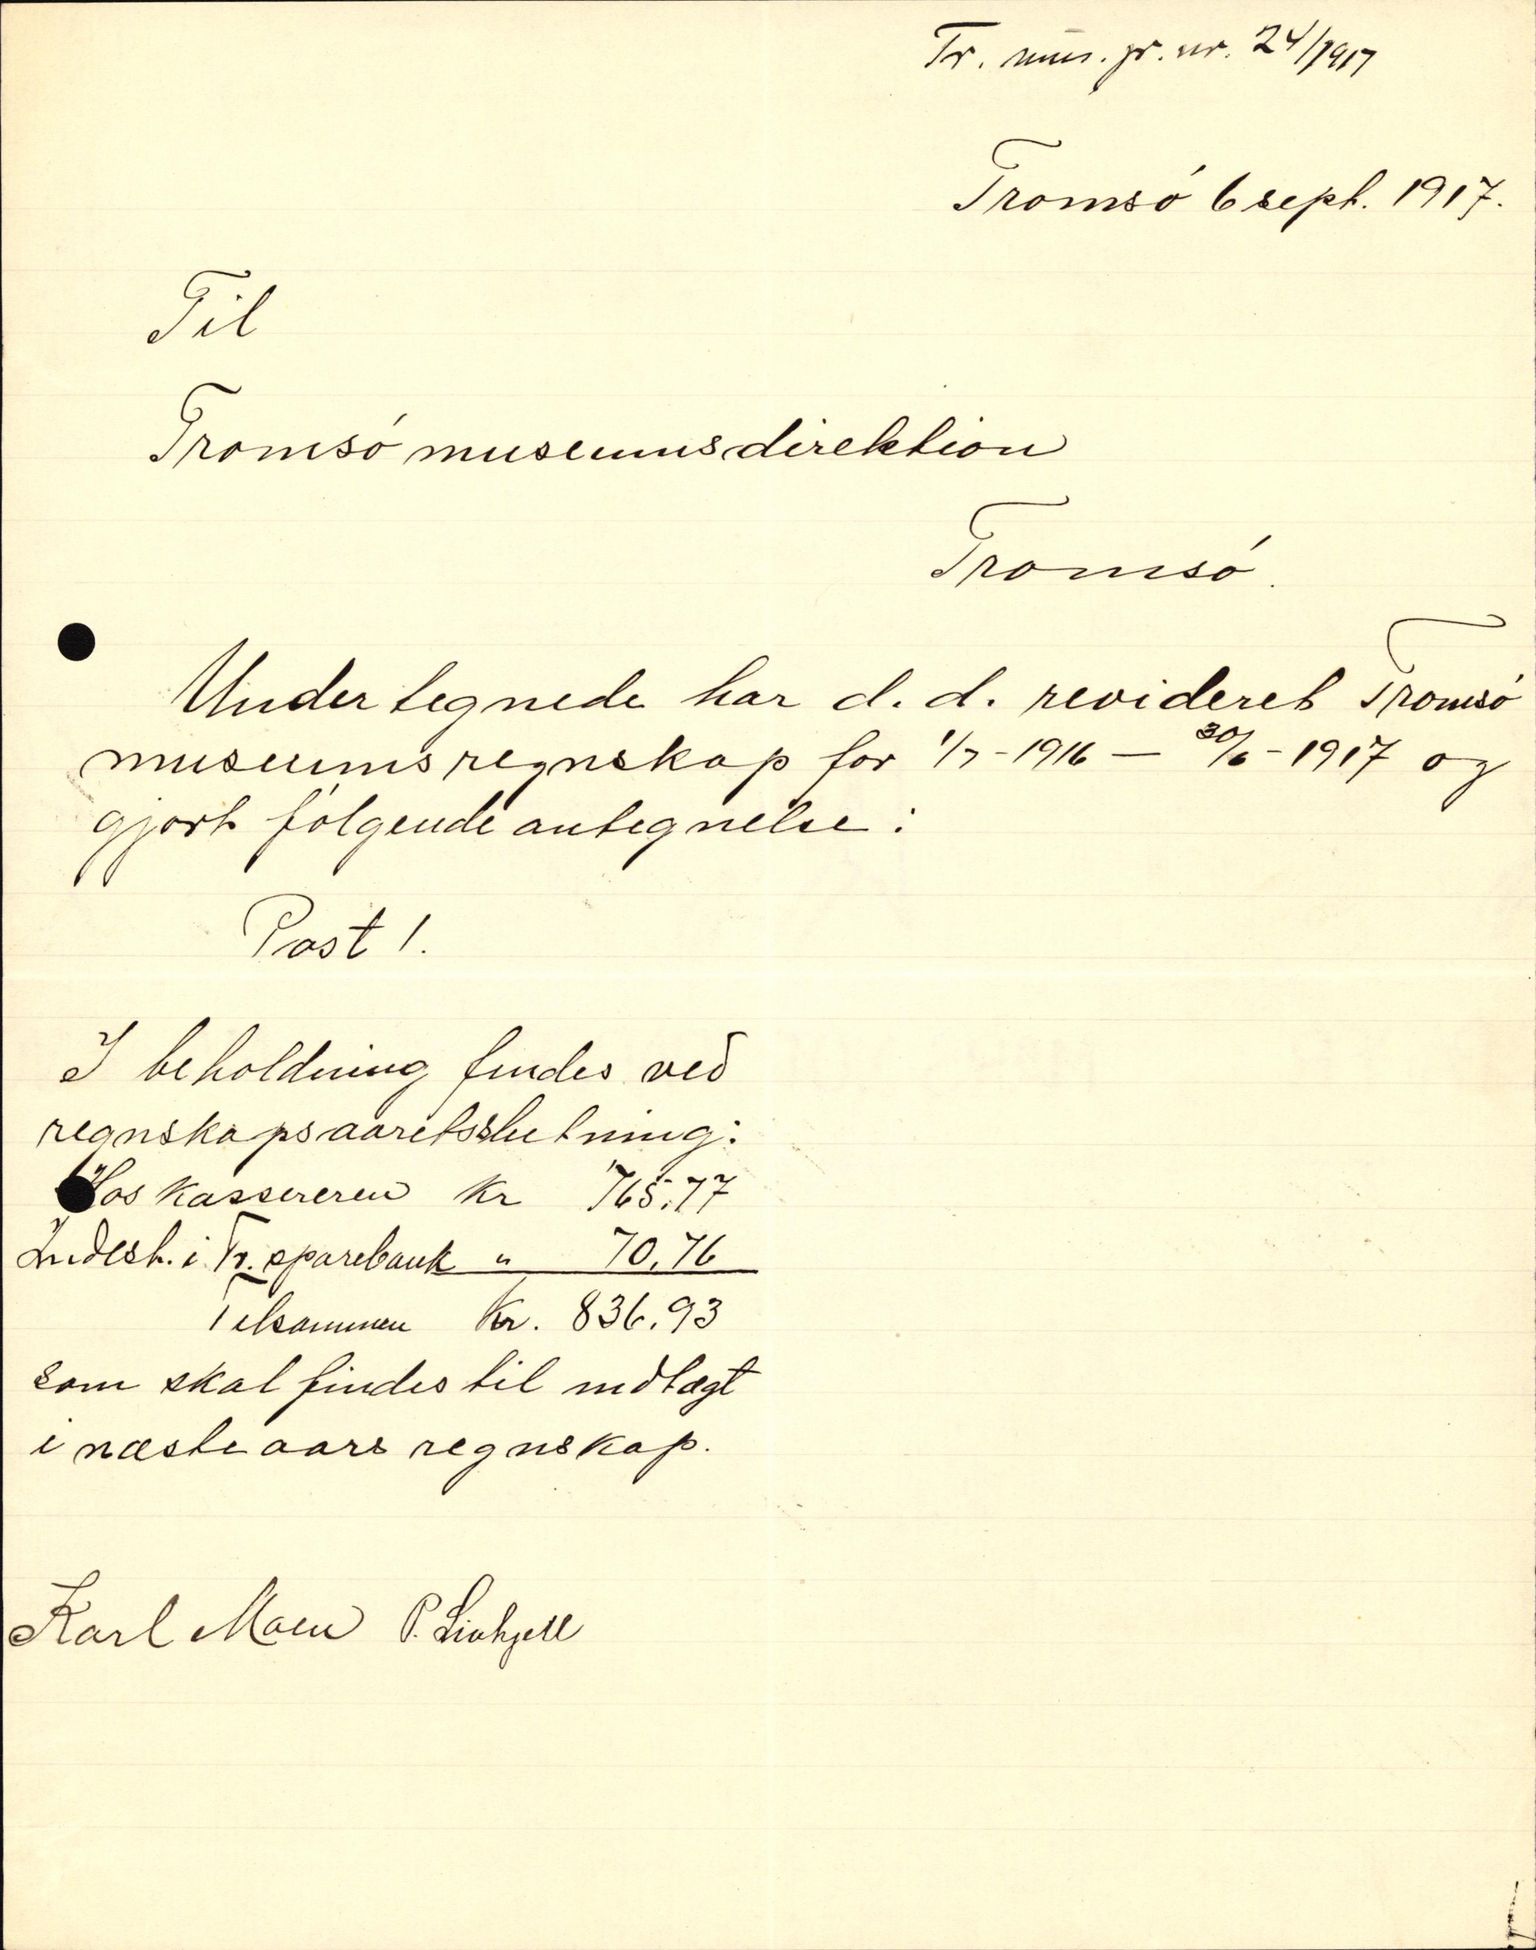 Tr. mus. gr. nr. 24/1917
Tromsó 6 sept. 1917.
Til
Tromsó museumsdirektion
Tromsó.
Undertegnede har d. d. revideret Tromsó
museumsregnskap for 1/7 - 1916 — 30/6 - 1917 og
gjort følgende antegnelse:
Post 1.
I beholdning findes ved
regnskapsaaretsslutning:
Hos kassereren kr 765,77
Indest. i Tr. sparebank " 70,76
Tilsammen Kr. 836,93
som skal findes til indtægt
i næste aars regnskap.
Karl Moen P.